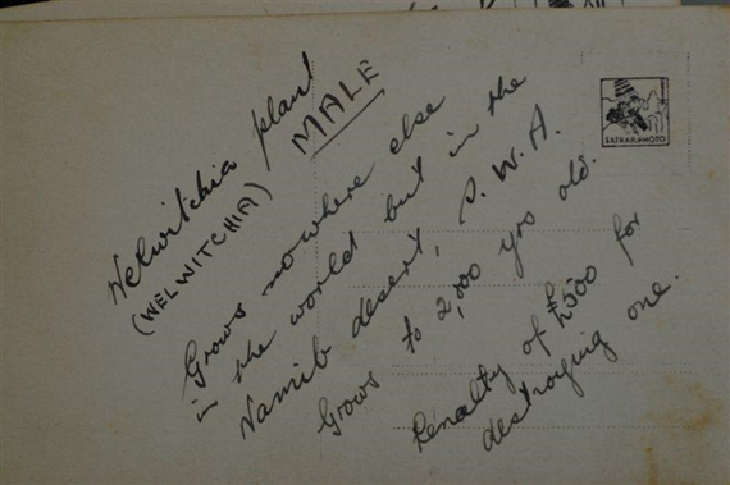 Welwitchia plant
(WELWITCHIA) MALE
Grows nowhere else
in the world but in the
Namib desert, S.W.A.
Grows to 2,000 yrs old.
Penalty of £500 for
destroying one.
SATRAP-PHOTO